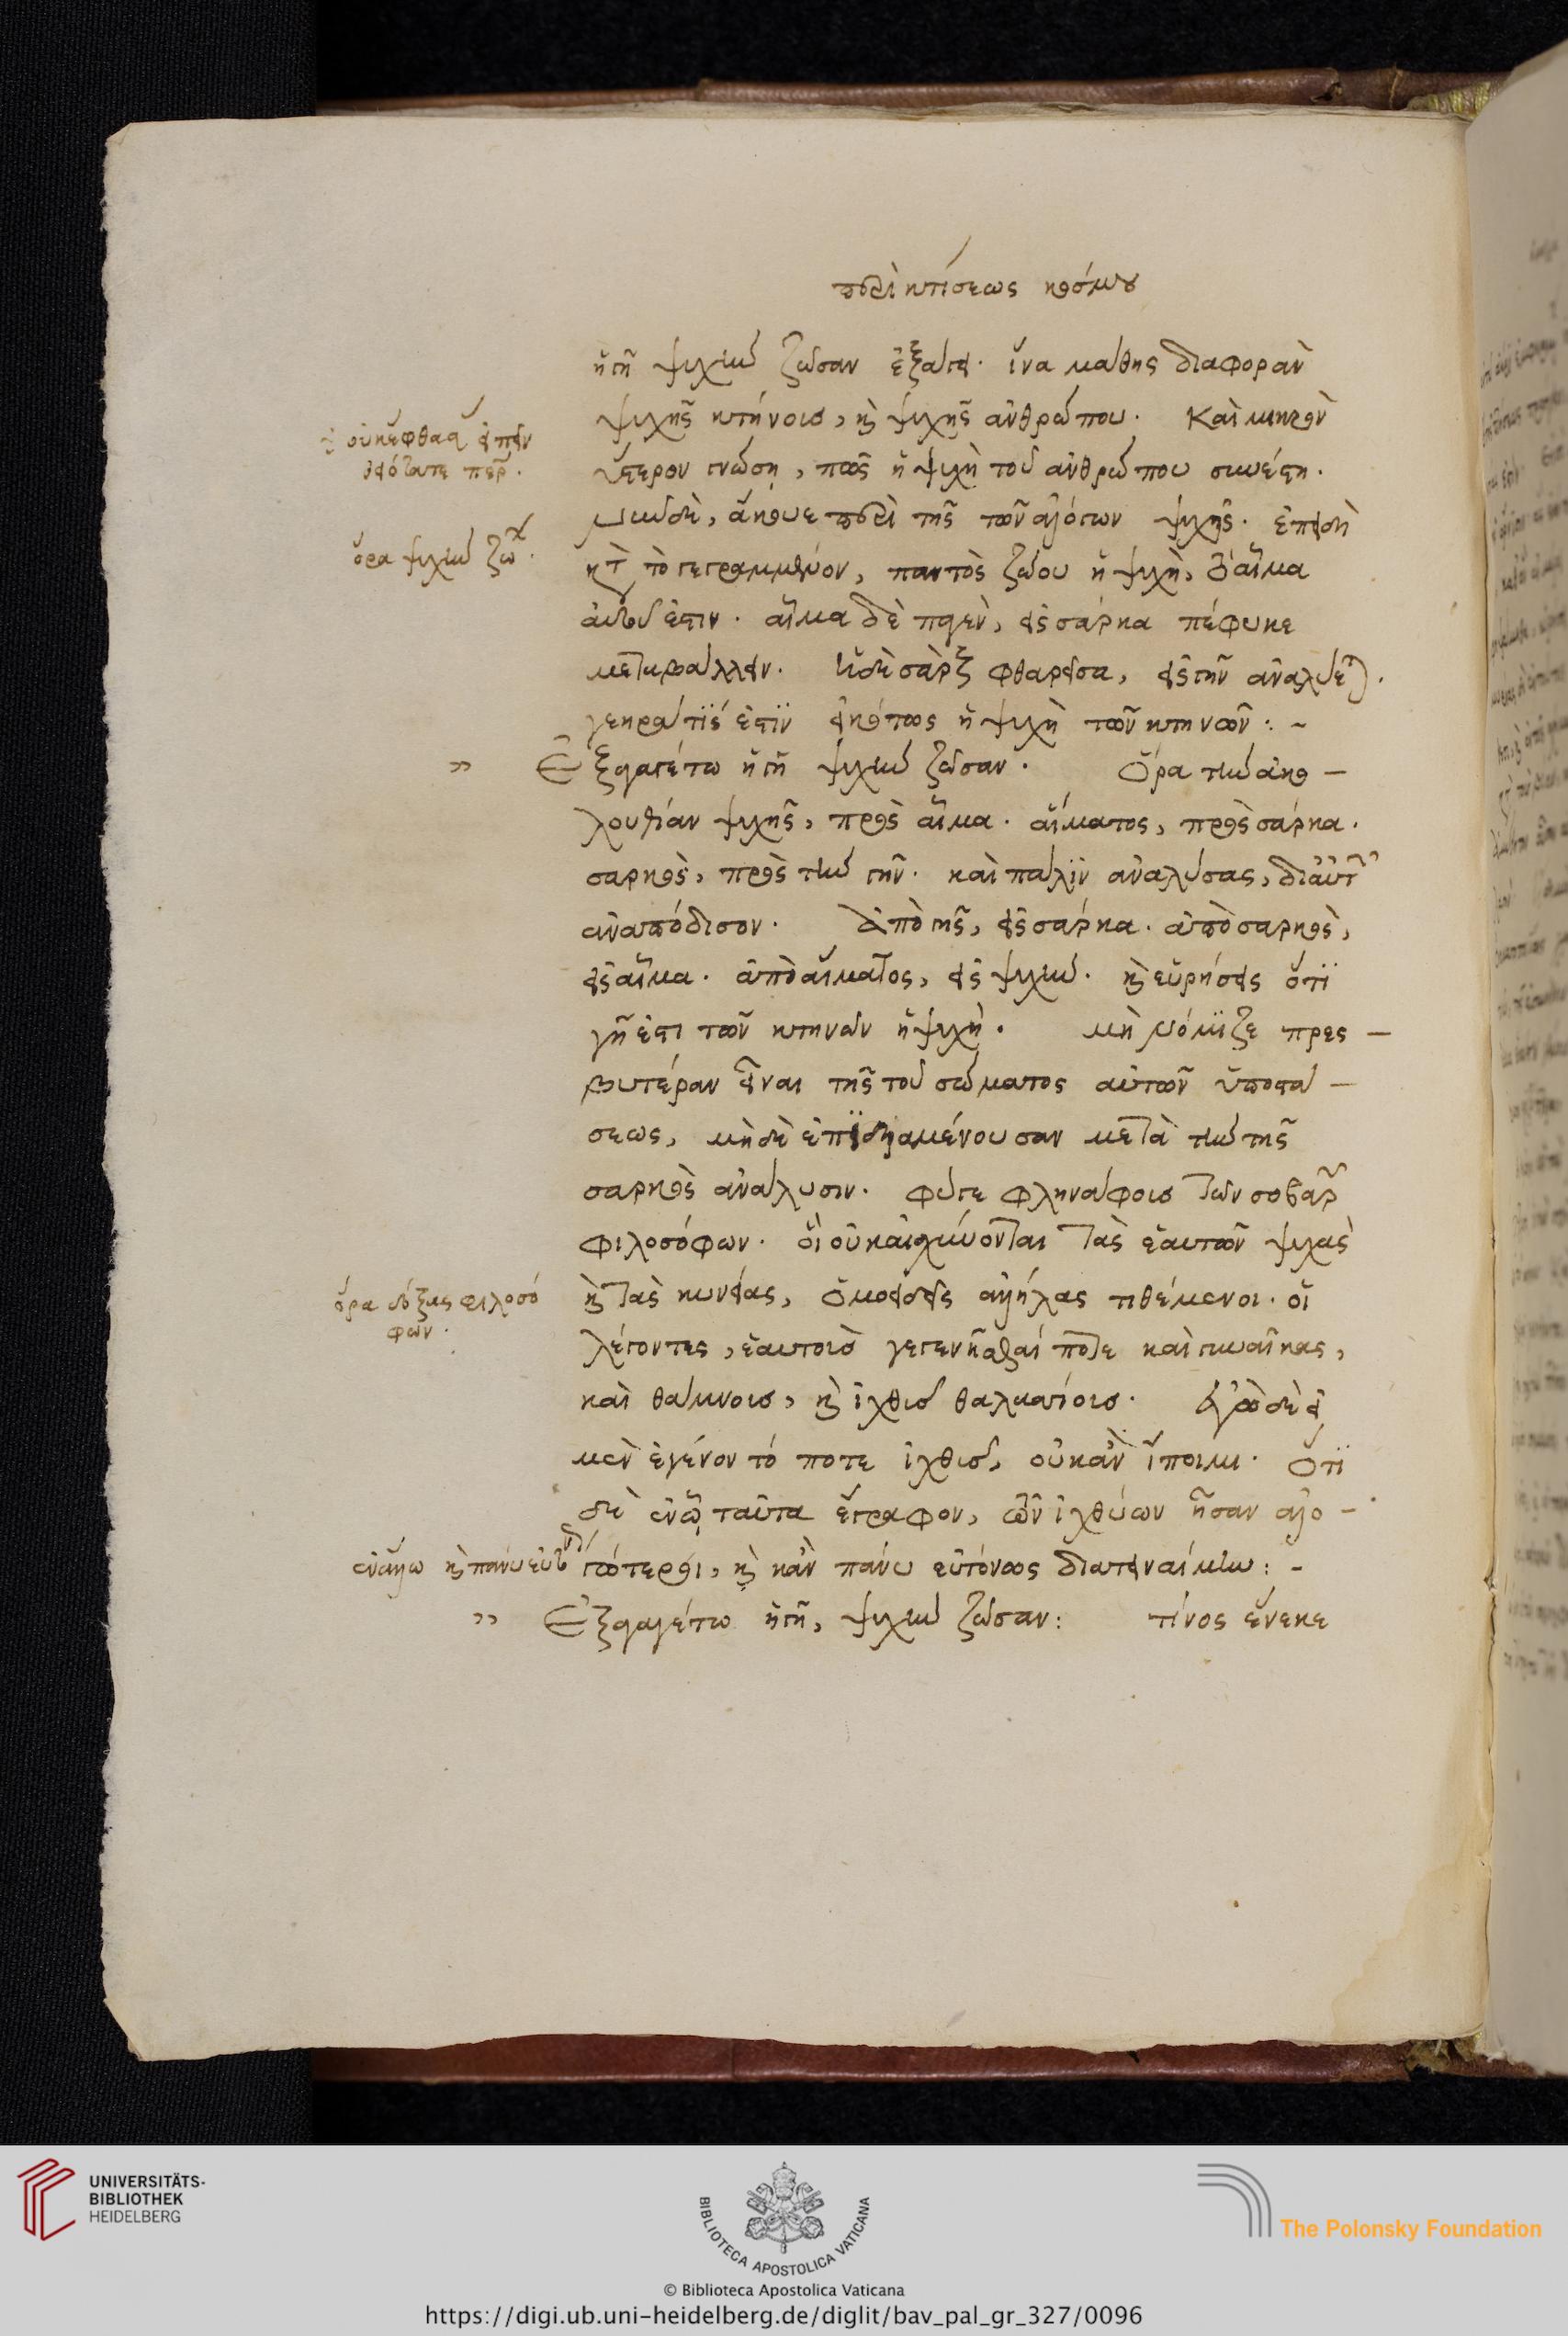 περὶ κτίσεως κόσμου
ἡ γῆ ψυχὴν ζῶσαν ἐξάγει. ἵνα μάθης διαφορὰν
ψυχῆς κτήνους, καὶ ψυχῆς ἀνθρώπου. Καὶ μικρὸν
ὕστερον γνώση, πῶς ἡ ψυχὴ τοῦ ἀνθρώπου συνέστη.
νυνδὲ, ἄκουε περὶ τῆς τῶν ἀλόγων ψυχῆς. ἐπειδὴ
ὅρα ψυχὴν
κατὰ τὸ γεγραμμένον, παντὸς ζώου ἡ ψυχὴ, τὸ αἷμα
αὐτοῦ ἐστιν. αἷμα δὲ παγὲν, εἰς σάρκα πέφυκε
μεταβάλλειν. ἡ δὲ σὰρξ φθαρεῖσα, εἰς γῆν ἀναλύεται.
γεηρά τίς ἐστϊν εἰκότως ἡ ψυχὴ τῶν κτηνῶν : ~
» Ἐξαγαγέτω ἡ γῆ ψυχὴν ζῶσαν. Ὅρα τὴν ἀκο –
λουθίαν ψυχῆς, πρὸς αἷμα. αἵματος, πρὸς σάρκα.
σαρκὸς, πρὸς τὴν γῆν. καὶ πάλϊν ἀναλύσας, δι αὐτῶν
ἀναπόδισον. Ἀπὸ γῆς, εἰς σάρκα. ἀπὸ σαρκὸς,
εἰς αἷμα. ἀπὸ αἵματος, εἰς ψυχὴν. καὶ εὑρήσεις ὅτϊ
γῆ ἐστι τῶν κτηνῶν ἡ ψυχὴ. μὴ νόμϊζε πρεσ –
βυτέραν εἶναι τῆς τοῦ σώματος αὐτῶν ὑποστά –
σεως, μὴ δὲ ἐπϊδιαμένουσαν μετὰ τὴν τῆς
σαρκὸς ἀνάλυσιν. φεῦγε φληνάφους τῶν σοβαρῶν
φιλοσόφων. οἳ οὐκ αἰσχύνονται τὰς ἑαυτῶν ψυχὰς
ὅρα δόξας φιλοσό
φων.
καὶ τὰς κυνείας, ὁμοειδεῖς ἀλλήλας τιθέμενοι. οἵ
λέγοντες, ἑαυτοὺς γεγενῆσθαί ποτε καὶ γυναῖκας,
καὶ θάμνους, καὶ ἰχθῦς θαλασσίους. Ἐγὼ δὲ εἰ
μὲν ἐγένοντό ποτε ἰχθῦς, οὐκ ἂν εἴποιμι. Ὅτϊ
δὲ ἐν ᾧ ταῦτα ἔγραφον, τῶν ἰχθύων ἦσαν ἀλο –
γώτεροι, καὶ κἂν πάνυ εὐτόνως διατειναίμην : ~
» Ἐξαγαγέτω ἡ γῆ, ψυχὴν ζῶσαν : τίνος ἕνεκε
UNIVERSITÄTS-
BIBLIOTHEK
HEIDELBERG
BIBLIOTECA APOSTOLICA VATICANA
The Polonsky Foundation
© Biblioteca Apostolica Vaticana
https://digi.ub.uni-heidelberg.de/diglit/bav_pal_gr_327/0096